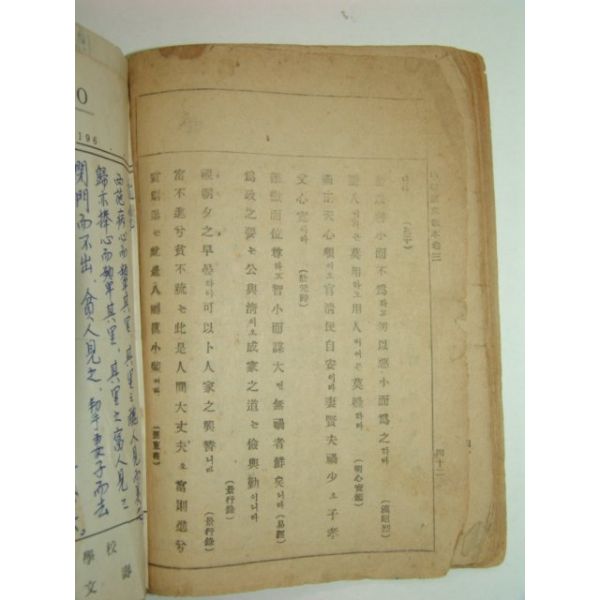 니라 (莊子)
勿以善小而不爲하고 勿以惡小而爲之하라 (漢昭烈)
疑人이어든 莫用하고 用人이어든 莫疑하라 (明心寶鑑)
國正天心順이오 官淸民自安이라 妻賢夫禍少오 子孝
父心寬이라
德微而位尊하고 智小而謀大면 無禍者鮮矣니라 (易經)
爲政之要는 公與淸이오 成家之道는 儉與勤이니라
(景行錄)
觀朝夕之早晏하야 可以卜人家之興替니라 (景行錄)
富不進兮貧不疎는 此是人間大丈夫오 富則進兮
貧則退는 此是人間眞小輩이라
四十二
卷三
O
196
西施病心而顰其里, 其里之醜人見
歸亦捧心而顰其里, 其里之富人見之
閉門而不出, 貧人見之, 挈妻子而去
校
學
文